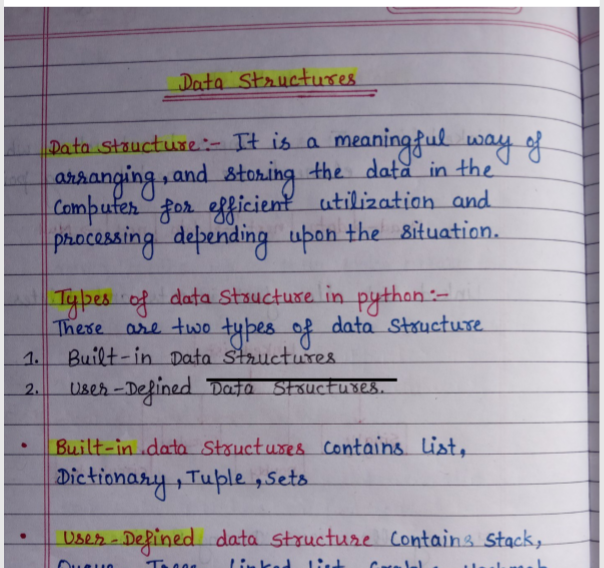 Data Structures
Data Structure:- It is a meaningful way of
arranging, and storing the data in the
Computer for efficient utilization and
processing depending upon the situation.
Types of data Structure in python:-
There are two types of data Structure
1. Built-in Data Structures
2. User-Defined Data Structures.
• Built-in data Structures Contains List,
Dictionary, Tuple, Sets
• User-Defined data structure Contains Stack,